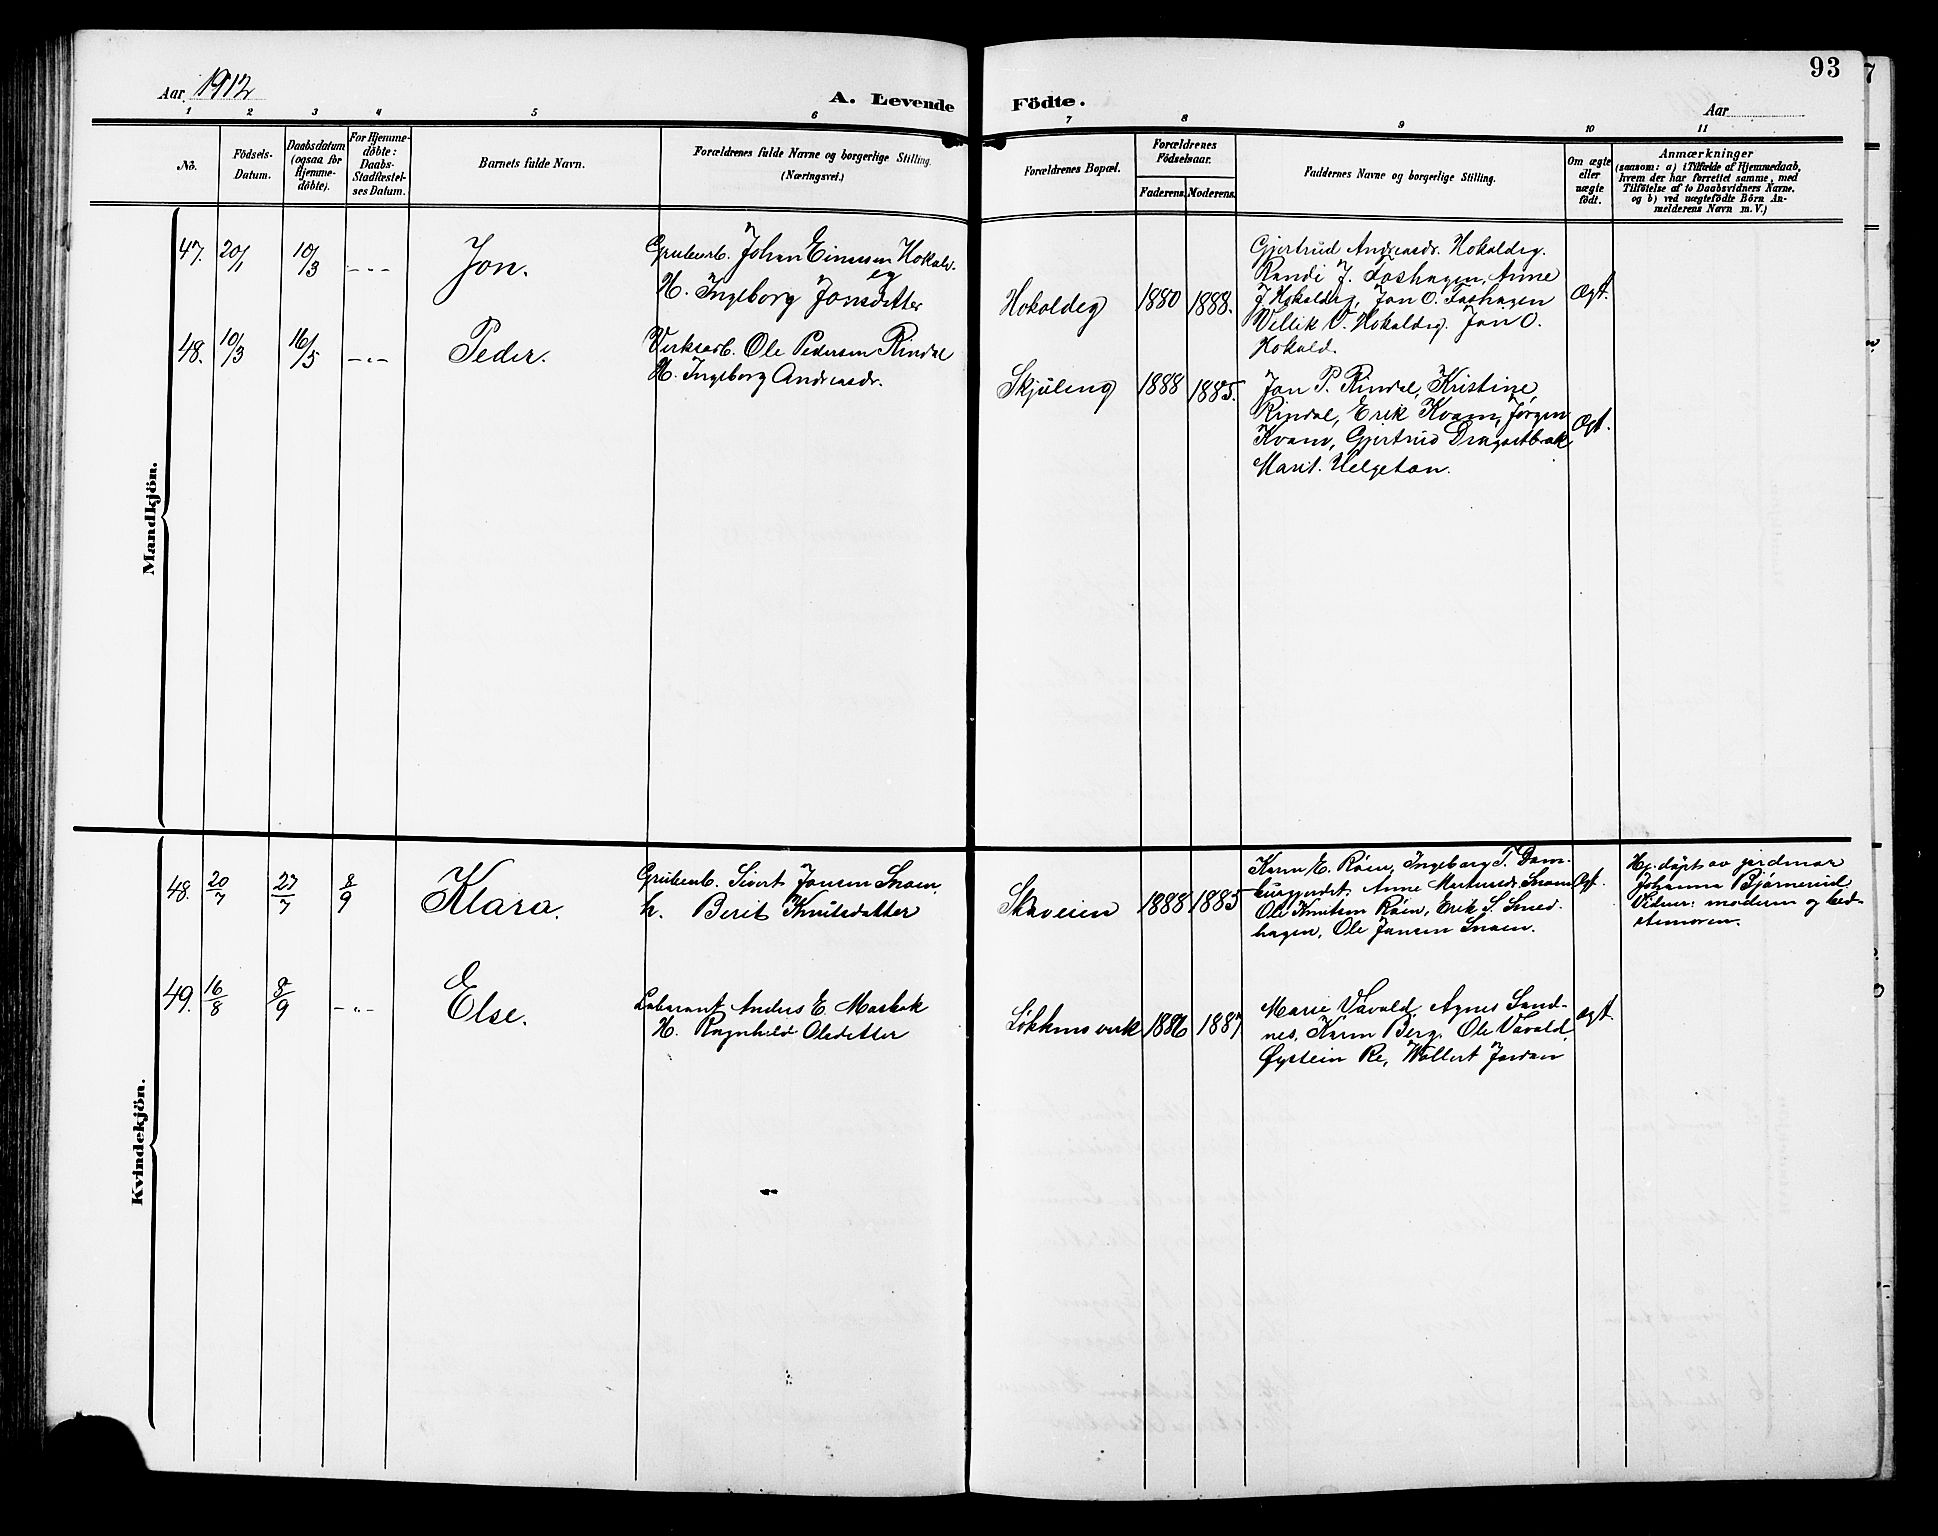 93
Aar 1912
A. Levende Fødte.
Aar
1 2 3 4 5 6 7 8 9 10 11
No.
Födsels-
Datum.
Daabsdatum
(ogsaa for
Hjemme-
döbte).
For Hjemme-
döbte:
Daabs-
Stadfæstel-
ses Datum.
Barnets fulde Navn.
Forældrenes fulde Navne og borgerlige Stilling.
(Næringsvei.)
Forældrenes Bopæl.
Forældrenes
Födselsaar.
Faderens. Moderens.
Faddernes Navne og borgerlige Stilling.
Om ægte
eller
uægte
födt.
Anmærkninger
(saasom: a) i Tilfælde af Hjemmedaab,
hvem der har forrettet samme, med
Tilföielse af to Daabsvidners Navne.
og b) ved uægtefödte Börn An-
melderens Navn m. V.)
Mandkjön.
47. 20/1 10/3 -"- Jon.
Grubearb. Johan Hokald-
eg
H. Ingeborg Jonsdatter
Hokaldeg 1880 1888.
Gjertrud Andreasdr. Hokaldeg.
Randi J. Foshagen, Anne
J. Hokaldeg, Jon O. Foshagen
O. Hokaldeg. Jon O.
Hokald.
Ægt.
48. 10/3 16/5 -"- Peder.
Verksarb. Ole Pedersen Rindal
H. Ingeborg Andreasdr.
Skjøleng 1888 1885.
Jon P. Rindal, Kristine
Rindal, Erik Kvam, Jørgen
Kvam, Gjertrud Dragsetbrak
Marit Helgeton.
Ægt.
Kvindekjön.
48. 20/7 27/7 8/9 Klara.
Grubearb. Sivert Jonsen Snoen,
h. Berit Knutsdatter
Skaveien 1888 1885
Karen E. Røen, Ingeborg T. Dam-
Anne Snoen
Ole Knutsen Røen, Erik S. Smed-
hagen, Ole Jonsen Snoen.
Ægt.
Hj. døpt av jordmor
Johanna Bjørnerud
Vidner: moderen og bed-
stemoren.
49. 16/8 8/9 -"- Else.
Laborant Anders E. Moskok
H. Ragnhild Olsdatter
Løkkens verk 1886 1887
Marie Vavald, Agnes Sand-
nes, Karen Berg, Ole Vavald,
Øystein Re, Wollert Jordan
ægt.